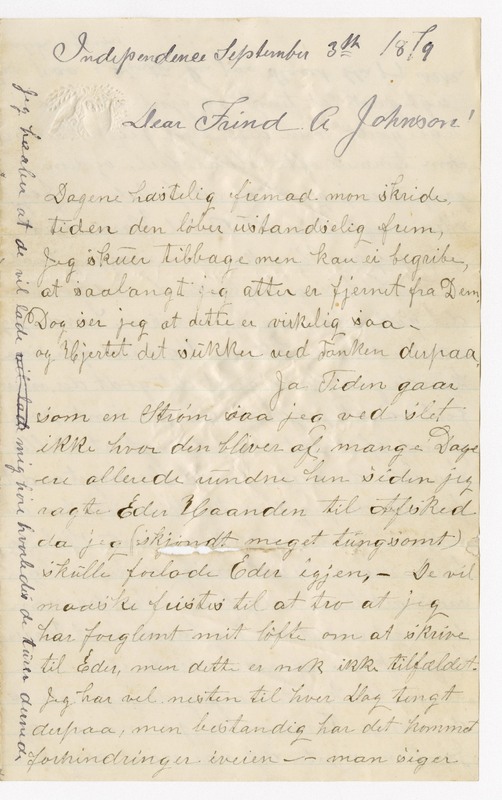 Independence September 3th 1879
Dear Frind A Johnson!
Dagene hastelig fremad mon skride,
tiden den løber ustandselig frem,
Jeg skuer tilbage men kan ei begribe,
at saalangt jeg atter er fjernet fra Dem.
Dog ser jeg at dette er virkelig saa -
og Hjertet det sukker ved Tanken derpaa.
Ja Tiden gaar
som en Strøm saa jeg ved slet
ikke hvor den bliver af, mange Dage
ere allerede rundne hen siden jeg
ragte Eder Haanden til Afsked
da jeg (skjøndt meget tungsomt)
skulle forlade Eder igjen, - De vil
maaske fristes til at tro at jeg
har forglemt mit løfte om at skrive
til Eder, men dette er nok ikke tilfældet-
Jeg har vel nesten til hver Dag tengt
derpaa, men bestandig har det kommet
forhindringer iveien - man siger
Jeg haaber at de vil lade mig høre hvorledes de